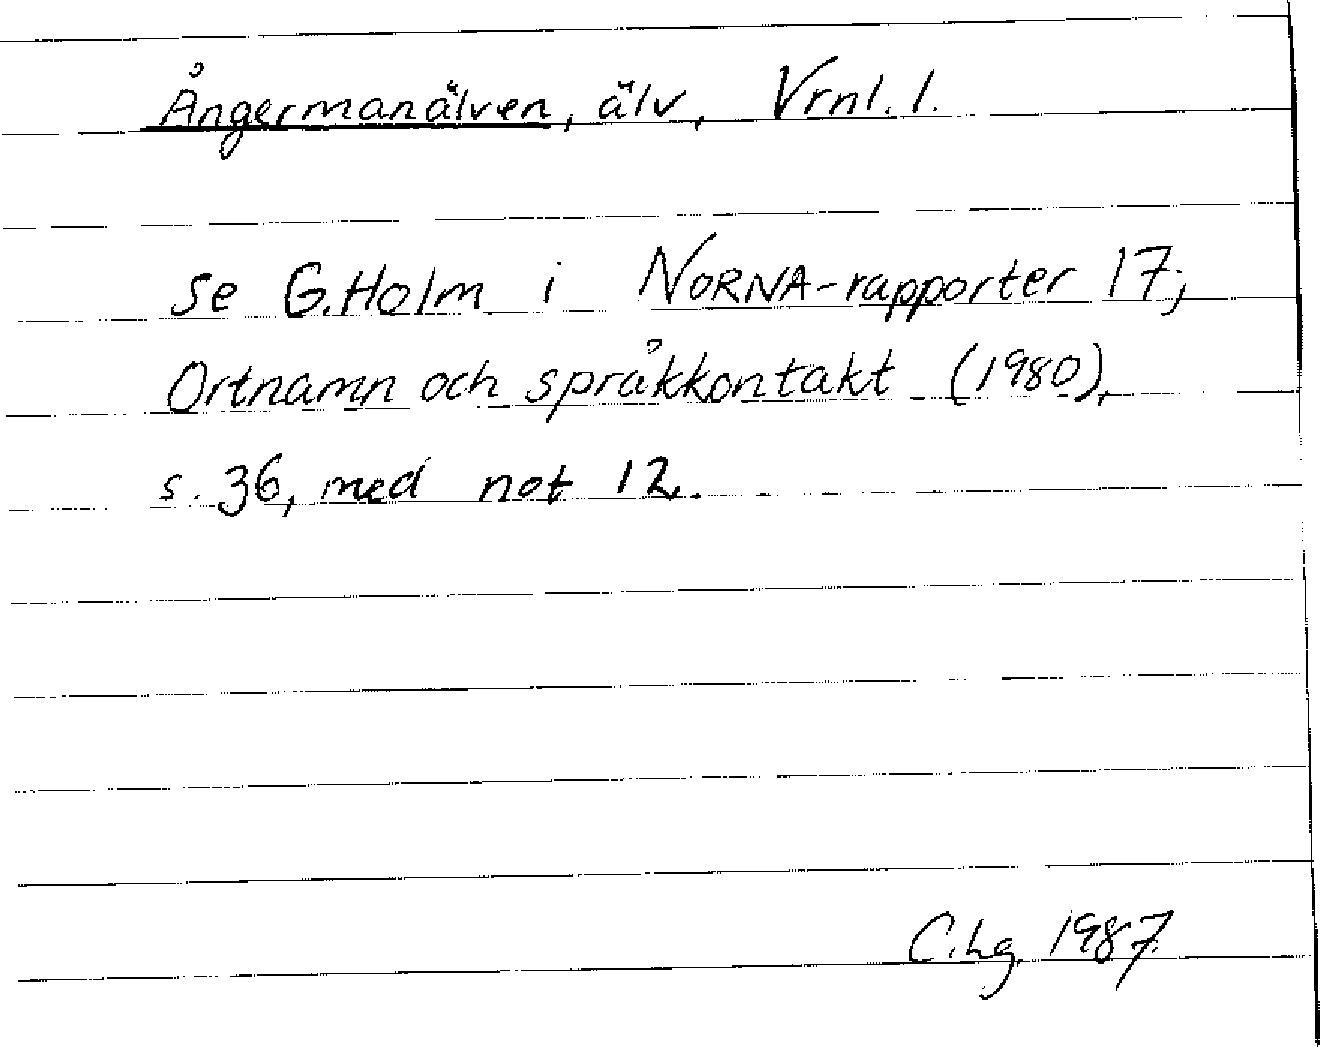 Ångermanälven, älv, Vrnl. l.
se G.Holm i NORNA-rapporter 17;
Ortnamn och språkkontakt (1980),
s. 36, med not 12.
C.Lg. 1987.